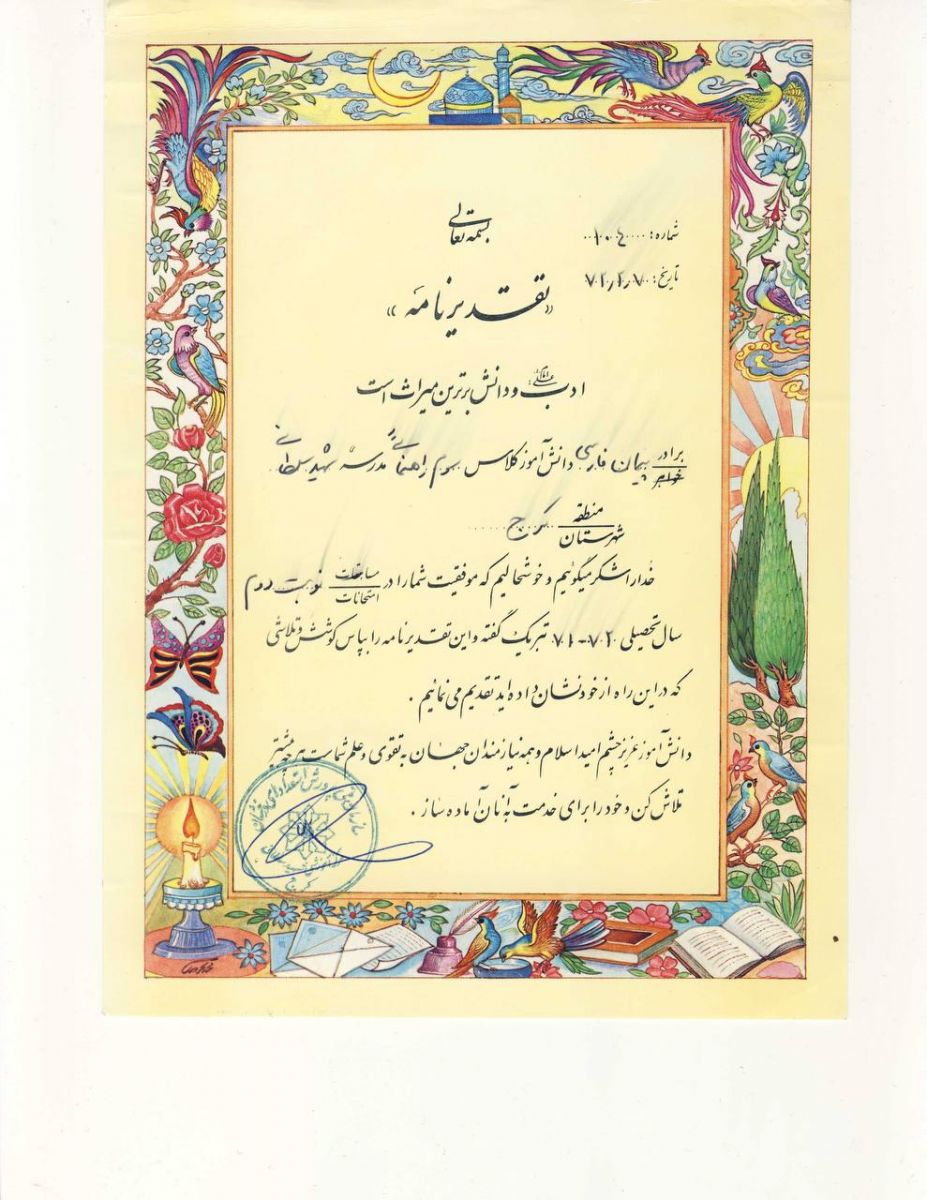 بسمه تعالی
شماره: ۱۰۰۴
تاریخ: ۷۲٫۴٫۷
«تقدیرنامه»
ادب و دانش برترین میراث است
برادر خواهر پیمان فارسی دانش آموز کلاس سوم راهنمائی مدرسه شهید سلطانی
منطقه شهرستان کرج
خدا را شکر میگوئیم و خوشحالیم که موفقیت شما را در مسابقات امتحانات نوبت دوم
سال تحصیلی ۷۲-۷۱ تبریک گفته و این تقدیرنامه را بپاس کوشش و تلاشی
که در این راه از خود نشان داده اید تقدیم می نمائیم .
دانش آموز عزیز چشم امید اسلام و همه نیازمندان جهان به تقوی و علم شماست هر چه بیشتر
تلاش کن و خود را برای خدمت به آنان آماده ساز .